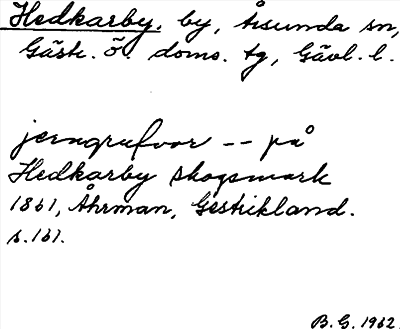 Hedkarby, by, Årsunda sn,
Gästr. ö. doms. tg, Gävl. l.
jerngrufvor -- på
Hedkarby skogsmark
1861, Åhrman, Gestrikland.
s. 161.
B. G. 1962.